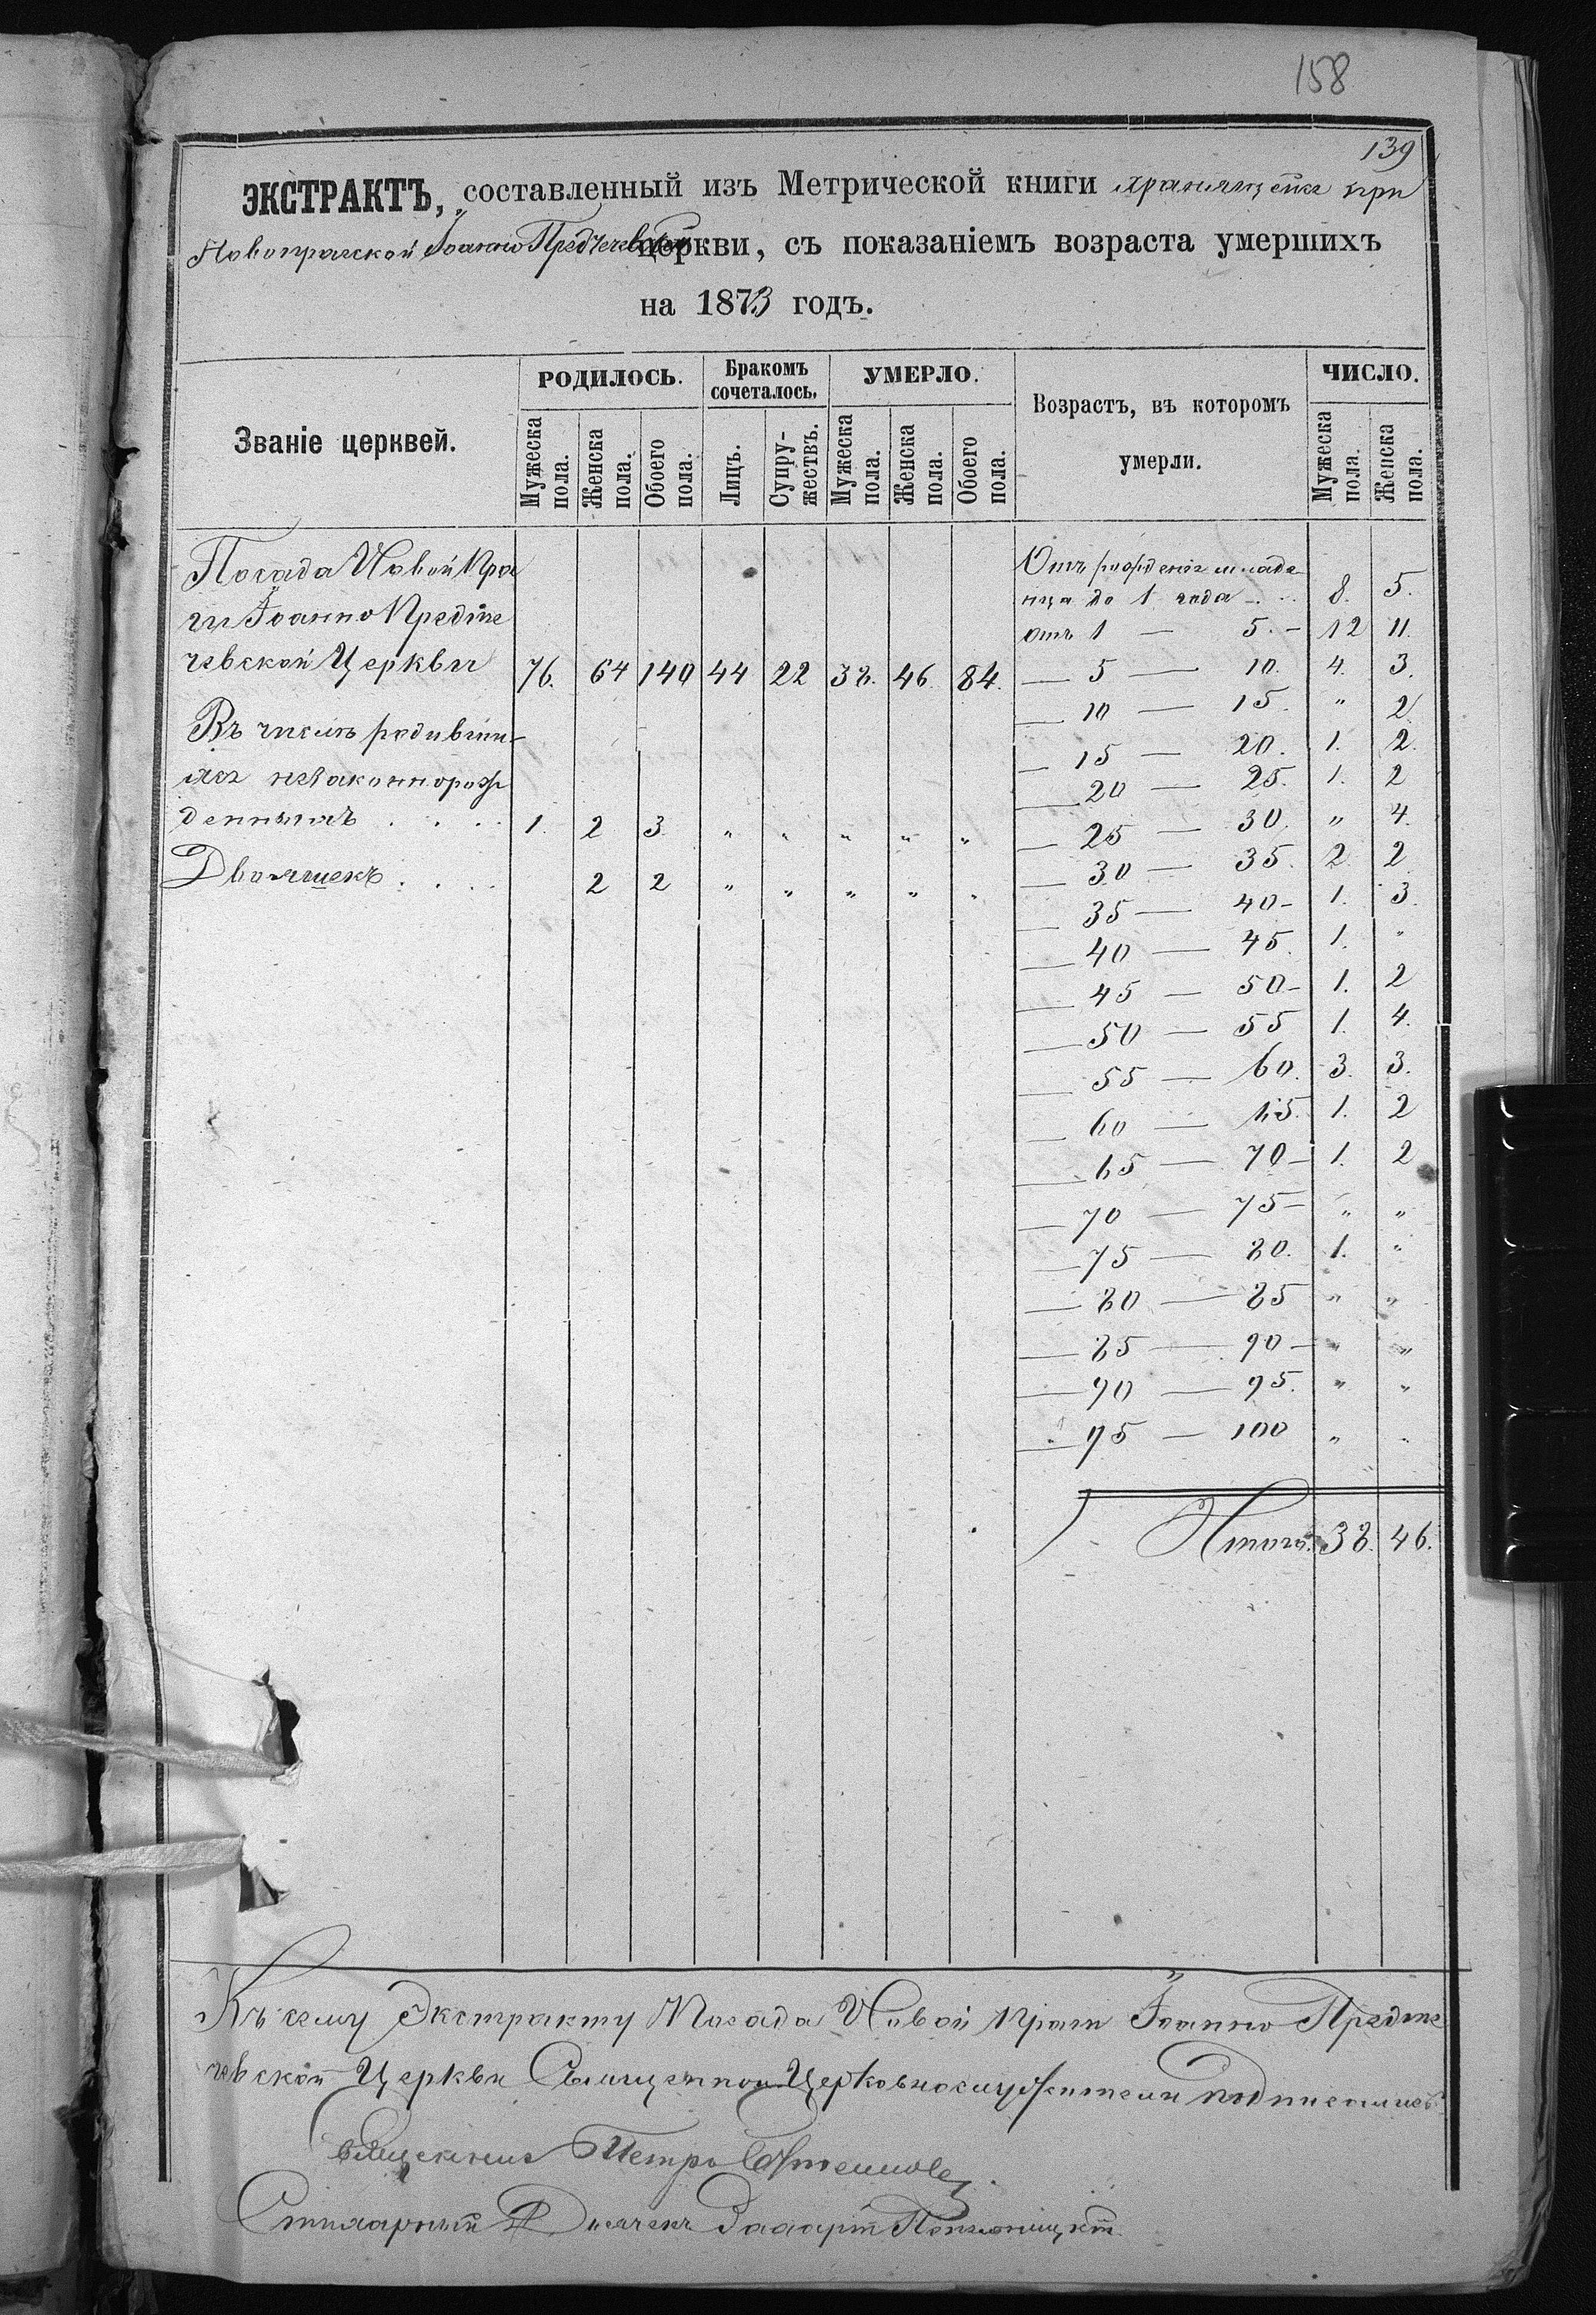 158
139
ЭКСТРАКТЪ, составленный изъ Метрической книги хранящейся при
Новопражской Іоанно Предтечевской церкви, съ показаніемъ возраста умершихъ
на 1873 годъ.
Званіе церквей. РОДИЛОСЬ. Бракомъ сочеталось. УМЕРЛО. Возрастъ, въ которомъ умерли. ЧИСЛО.
Мужеска пола. Женска пола. Обоего пола. Лицъ. Супружествъ. Мужеска пола. Женска пола. Обоего пола. Мужеска пола. Женска пола.
Посада Новой Пра
ги Іоанно Предте
чевской Церкви 76. 64 140 44 22 38. 46. 84.
Въ числѣ родивши-
хся незаконнорож
денныхъ . . . . 1. 2 3 „ „ „ „ „
Двойяшекъ . . . . 2 2 „ „ „ „ „
Отъ рожденія младе
нца до 1 года - . . 8. 5.
отъ 1 — 5. - 12 11.
— 5 — 10. 4. 3.
— 10 — 15. „ 2.
— 15 — 20. 1. 2.
— 20 — 25. 1. 2
— 25 — 30. „ 4.
— 30 — 35. 2. 2
— 35 — 40- 1. 3.
— 40 — 45. 1. „
— 45 — 50- 1. 2
— 50 — 55 1. 4.
— 55 — 60. 3. 3.
— 60 — 65. 1. 2
— 65 — 70- 1. 2
— 70 — 75- „ „
— 75 — 80. 1. „
— 80 — 85 „ „
— 85 — 90- „ „
— 90 — 95. „ „
— 95 — 100 „ „
Итого. 38. 46.
Къ сему Экстракту Посада Новой Праги Іоанно Предте
чевской Церкви Священно Церковнослужители подписались
Священникъ Петръ
Стихарный Дьячекъ Захарій